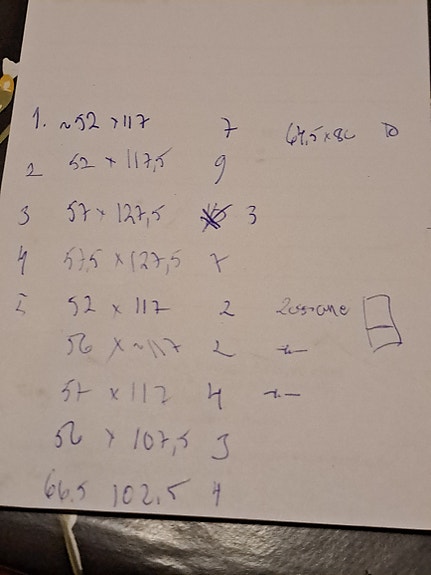 1. ~52 × 117 7 67,5 × 80 10
2 52 × 117,5 9
3 57 × 127,5 3
4 57,5 × 127,5 7
5 52 × 117 2
56 × ~117 2 -"-
57 × 117 4 -"-
56 × 107,5 3
66,5 102,5 4